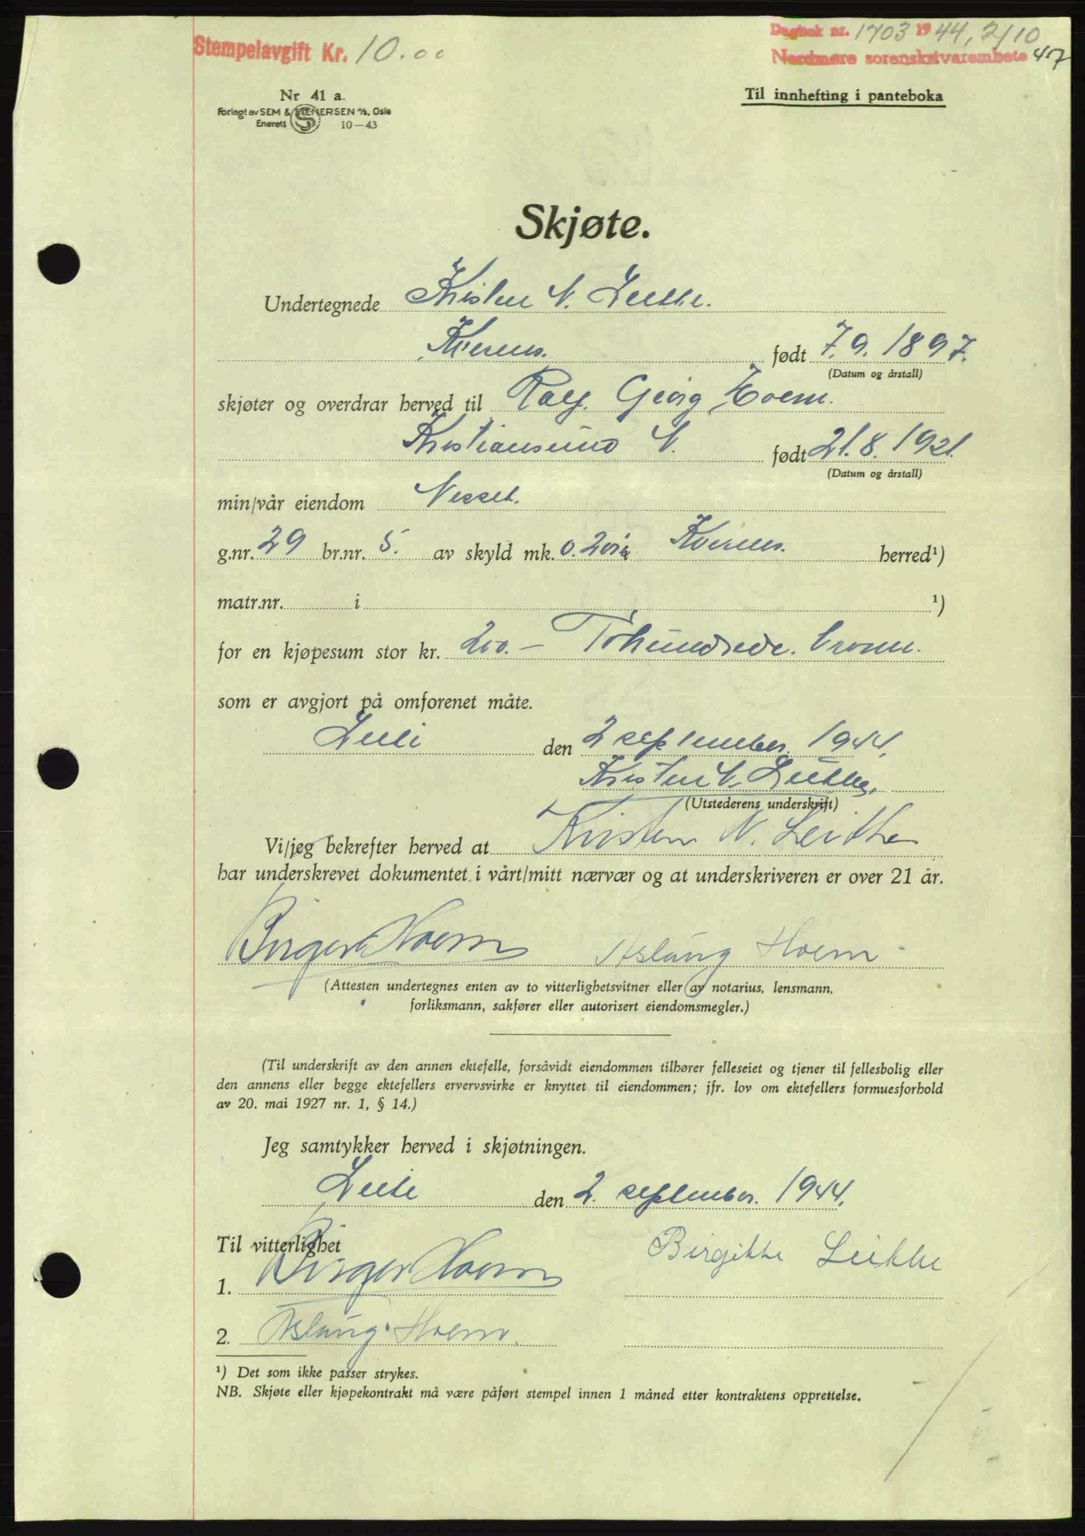 Stempelavgift Kr. 10.00
Dagbok nr. 1703 1944, 2/10
Nordmøre sorenskrivarembete 417
Nr 41 a.
Forlagt av SEM & STENERSEN A/S, Oslo
Enerett S 10—43
Til innhefting i panteboka
Skjøte.
Undertegnede Kristen N. Leithe.
Kvernes. født 7.9.1897.
(Datum og årstall)
skjøter og overdrar herved til Ralf Georg Hoem.
Kristiansund N. født 21.8.1921.
(Datum og årstall)
min/vår eiendom Nesset.
g.nr. 29 br.nr. 5. av skyld mk. 0.20 i Kvernes. herred¹)
matr.nr. i ¹)
for en kjøpesum stor kr. 200.— Tohundrede. kroner.
som er avgjort på omforenet måte.
den 2 september. 1944.
Kristen N. Leithe.
(Utstederens underskrift)
Vi/jeg bekrefter herved at Kristen N. Leithe
har underskrevet dokumentet i vårt/mitt nærvær og at underskriveren er over 21 år.
Birger Hoem Aslaug Hoem
(Attesten undertegnes enten av to vitterlighetsvitner eller av notarius, lensmann,
forliksmann, sakfører eller autorisert eiendomsmegler.)
(Til underskrift av den annen ektefelle, forsåvidt eiendommen tilhører felleseiet og tjener til fellesbolig eller
den annens eller begge ektefellers ervervsvirke er knyttet til eiendommen; jfr. lov om ektefellers formuesforhold
av 20. mai 1927 nr. 1, § 14.)
Jeg samtykker herved i skjøtningen.
den 2. september. 1944.
Til vitterlighet
Birgitte Leithe
1. Birger Hoem
2. Aslaug Hoem.
¹) Det som ikke passer strykes.
NB. Skjøte eller kjøpekontrakt må være påført stempel innen 1 måned etter kontraktens opprettelse.